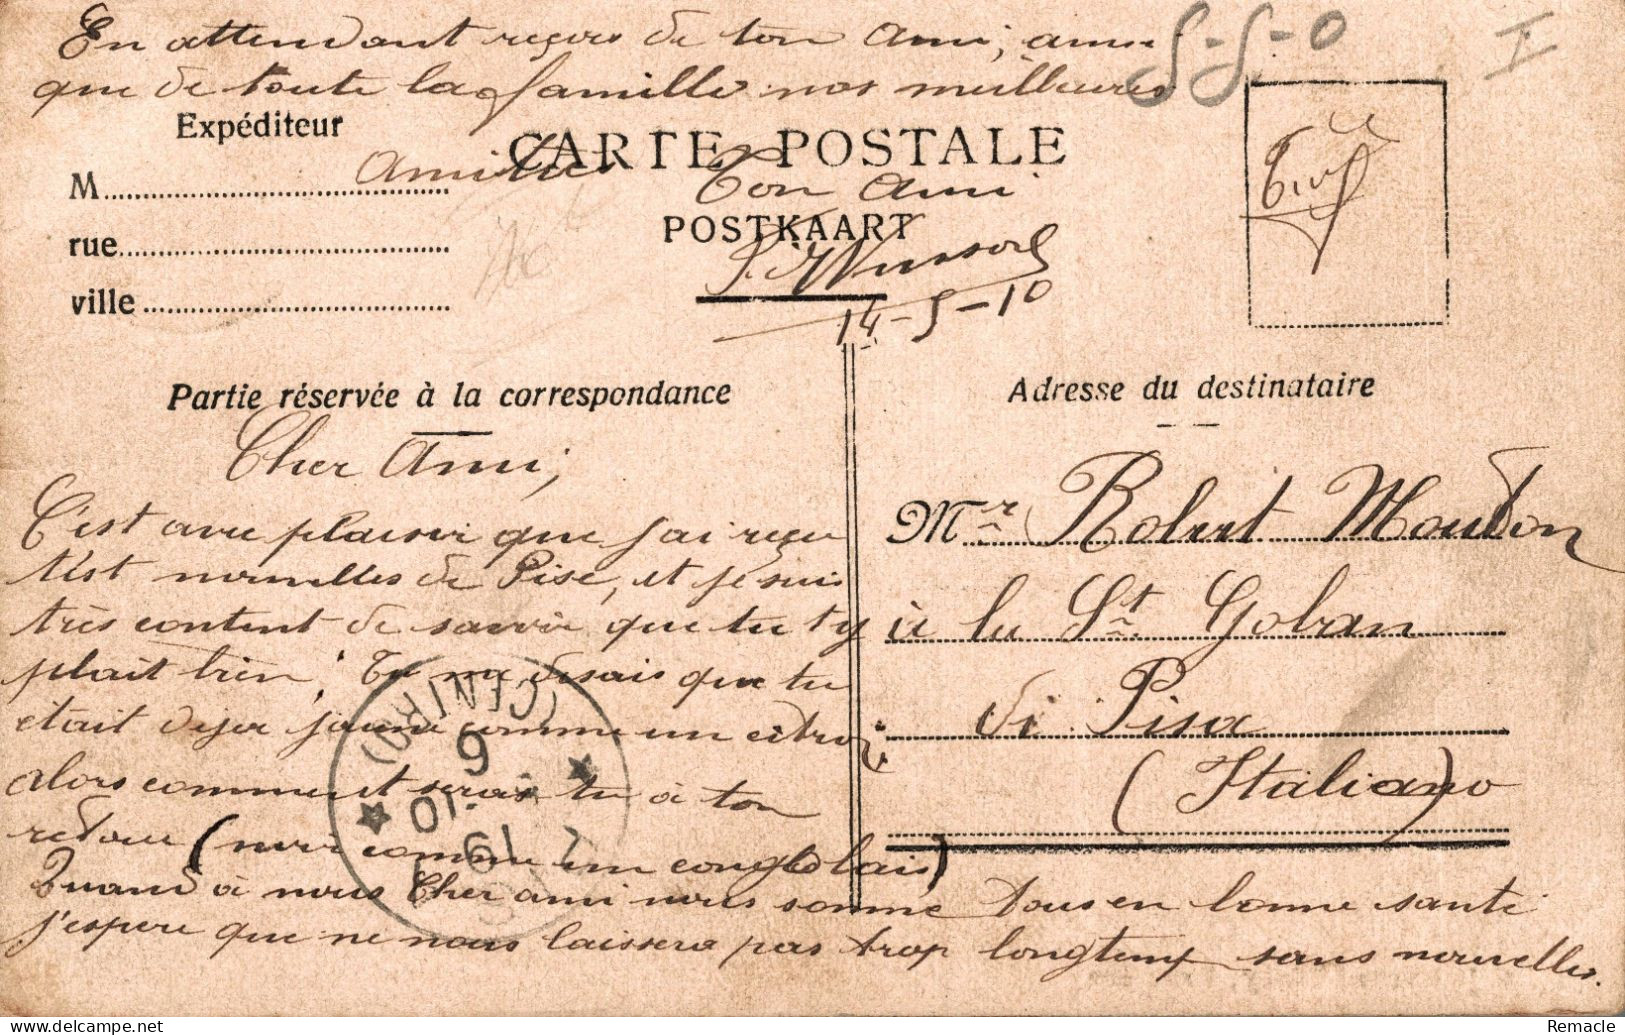 En attendant reçois de ton ami, ainsi
que de toute la famille nos meilleures
amitiés
Ton ami
14-5-10
S-S-0
I
Expéditeur
M
rue
ville
CARTE POSTALE
POSTKAART
Partie réservée à la correspondance
Cher Ami,
C'est avec plaisir que j'ai reçu
nouvelles de Pise, et je suis
très content de savoir que tu t'y
plait bien. Tu me disais que tu
était dejer jaune comme un citron
alors comment serais tu à ton
retour (noir comme un congolais)
Quand à nous Cher ami nous somme tous en bonne santé
j'espere que ne nous laissera pas trop longtemp sans nouvelles.
Adresse du destinataire
Mr Robert Moudon
à la St Goban
di Pisa
(Italiano)
(CENTRO)
6
10
19
Remacle